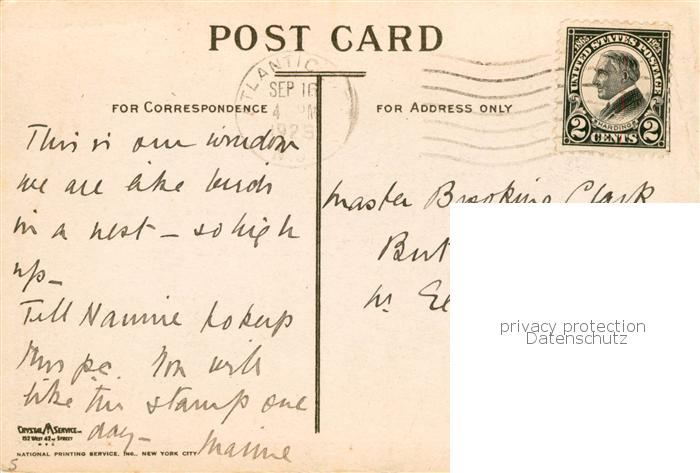 POST CARD
1865 1923
UNITED STATES POSTAGE
HARDING
2 CENTS 2
ATLANTIC
SEP 16
4 PM
1923
N.J.
FOR CORRESPONDENCE
FOR ADDRESS ONLY
This is our window
we are like birds
in a nest – so high
up –
Tell Nannie to keep
this pc. You will
like this stamp one
day –
Master Brooking Clark
But
W.
privacy protection
Datenschutz
CRYSTAL SERVICE
152 WEST 42ND STREET
N.Y.C.
NATIONAL PRINTING SERVICE, INC., NEW YORK CITY
5